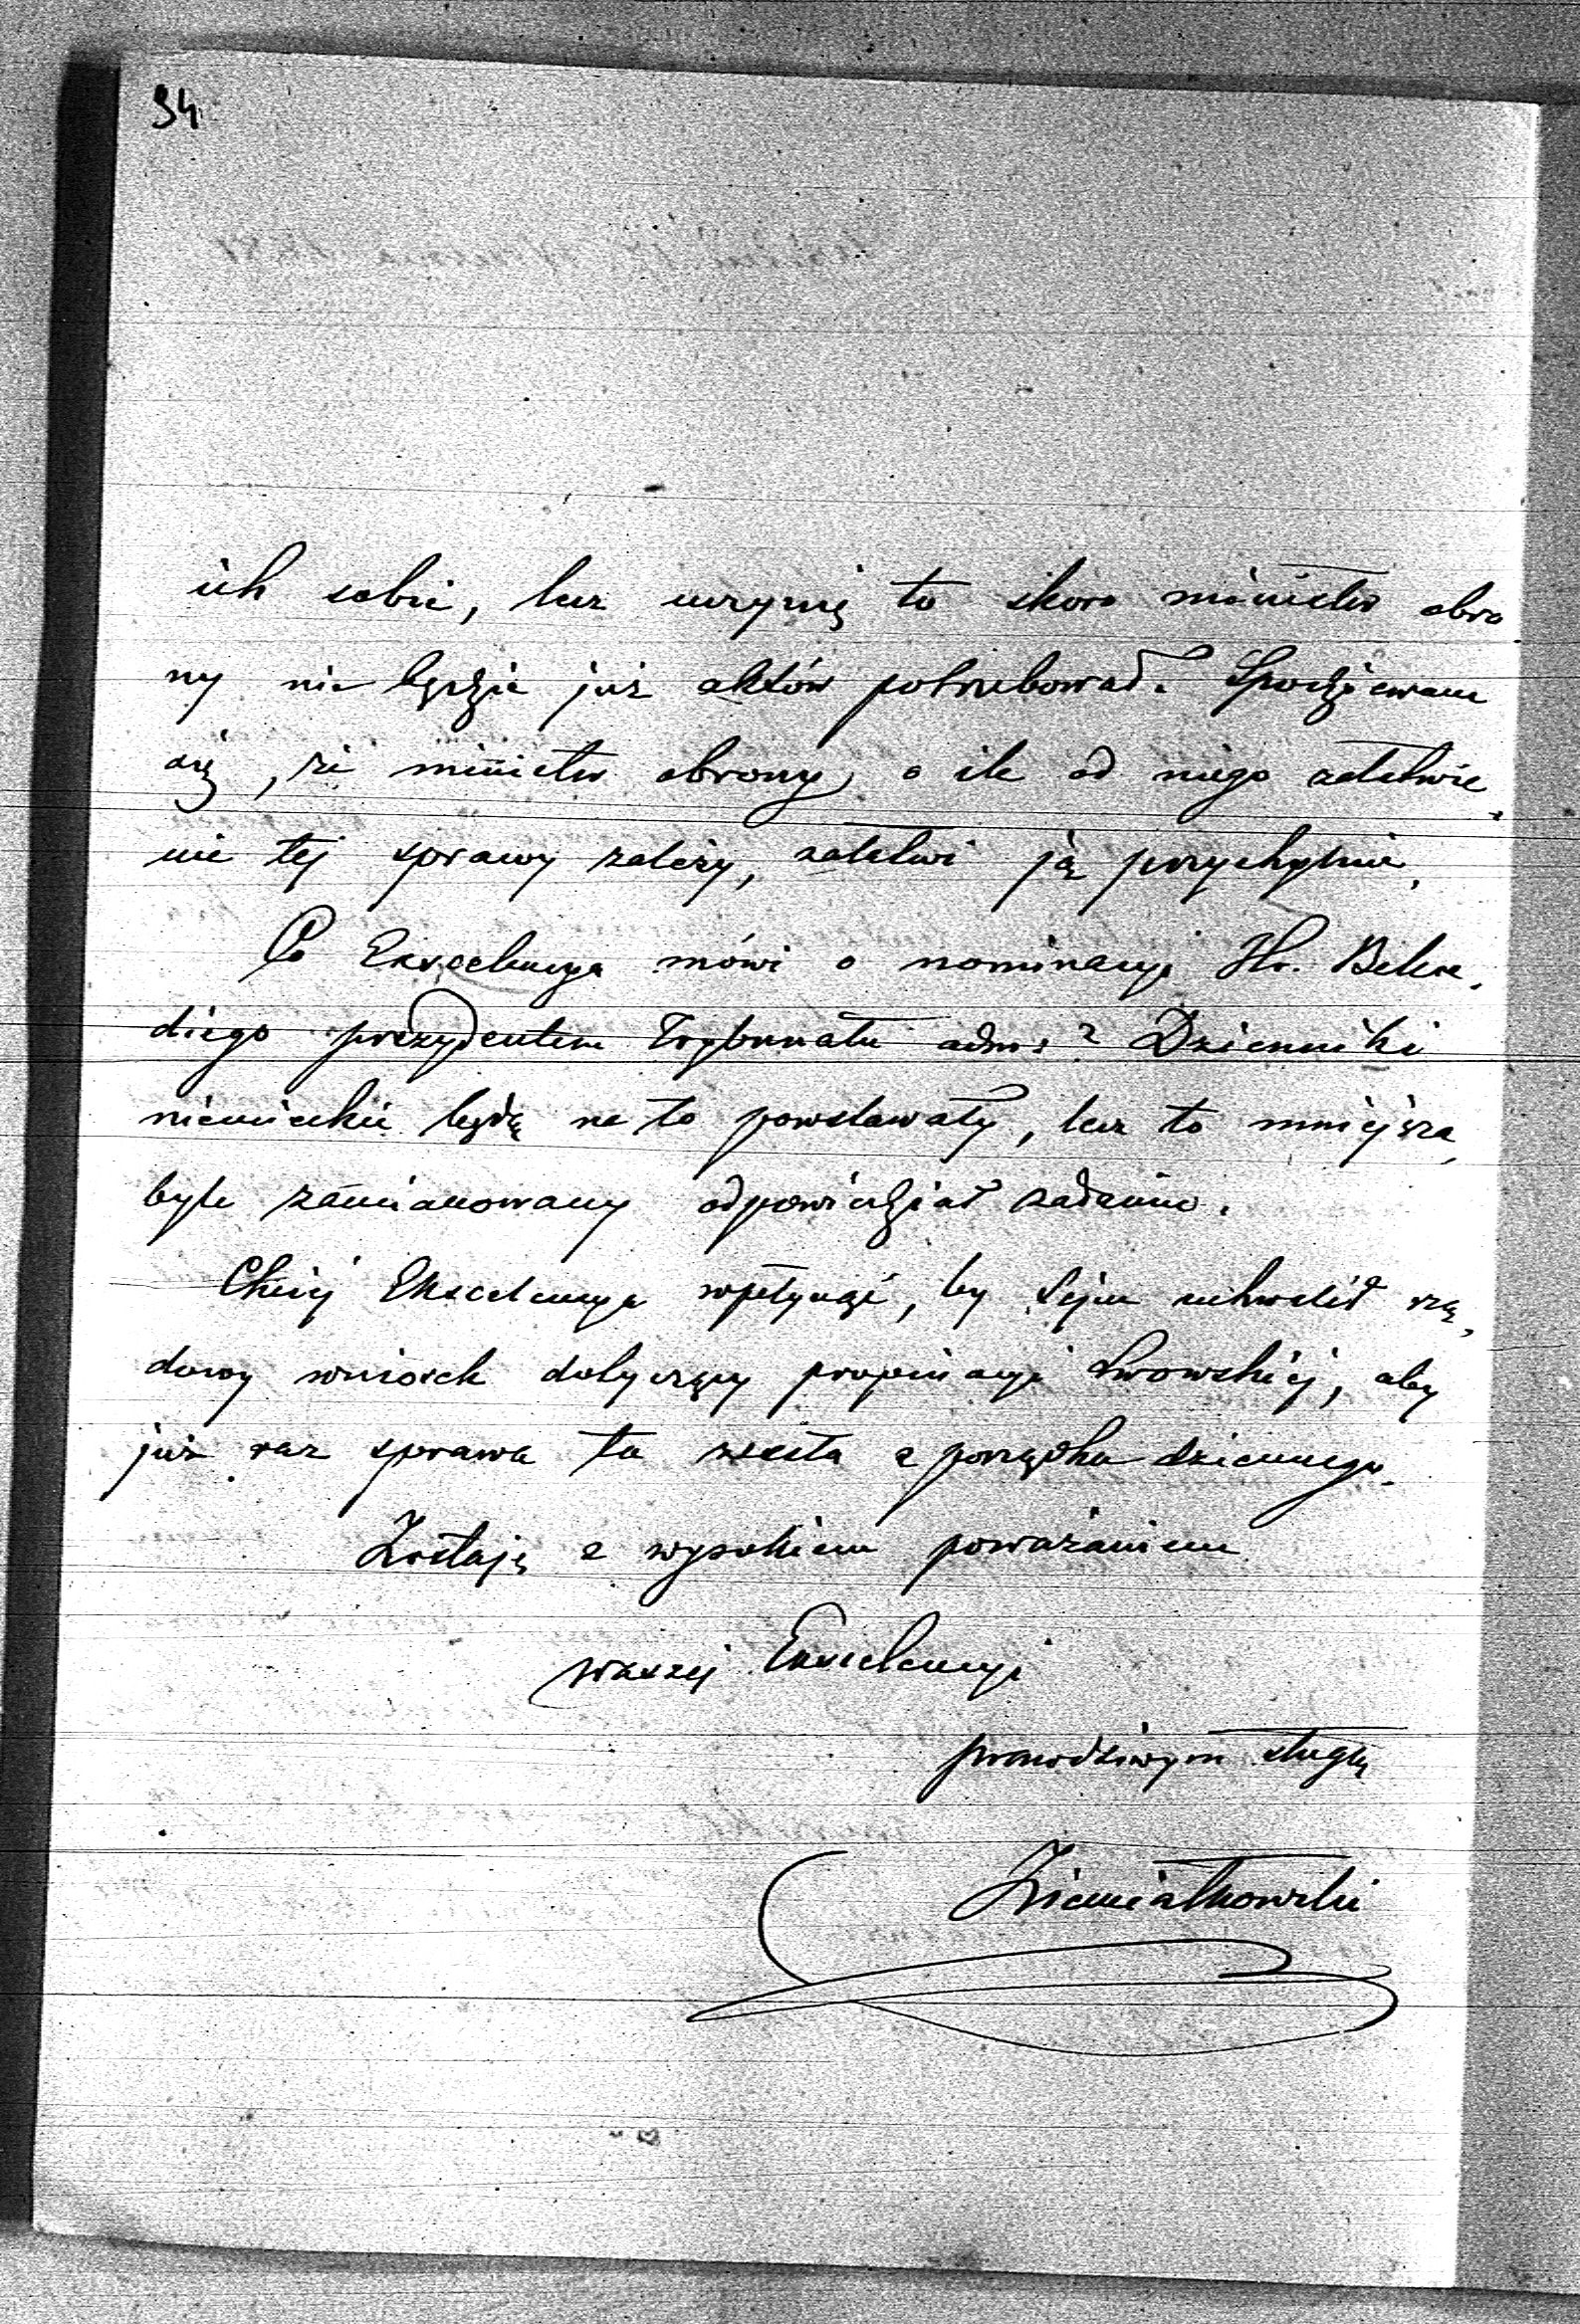 94
ich sobie, lecz uczynię to skoro minister obro
ny nie będzie już aktów potrzebował. Spodziewam
się, że minister obrony, o ile od niego załatwie
nie tej sprawy zależy, załatwi ją przychylnie.
Co Excelencya mówi o nominacyi Hr. Belcre-
diego prezydentem Trybunału adm.? Dzienniki
niemieckie będą na to powstawały, lecz to mniejsza,
byle zamianowany odpowiedział zadaniu.
Chciej Ekscelencya wpłynąć, by Sejm uchwalił rzą-
dowy wniosek dotyczący propinacyi Lwowskiej, aby
już raz sprawa ta zeszła z porządku dziennego.
Zostaję z wysokiem poważaniem
waszej Excelencyi
prawdziwym sługą
Ziemiałkowski